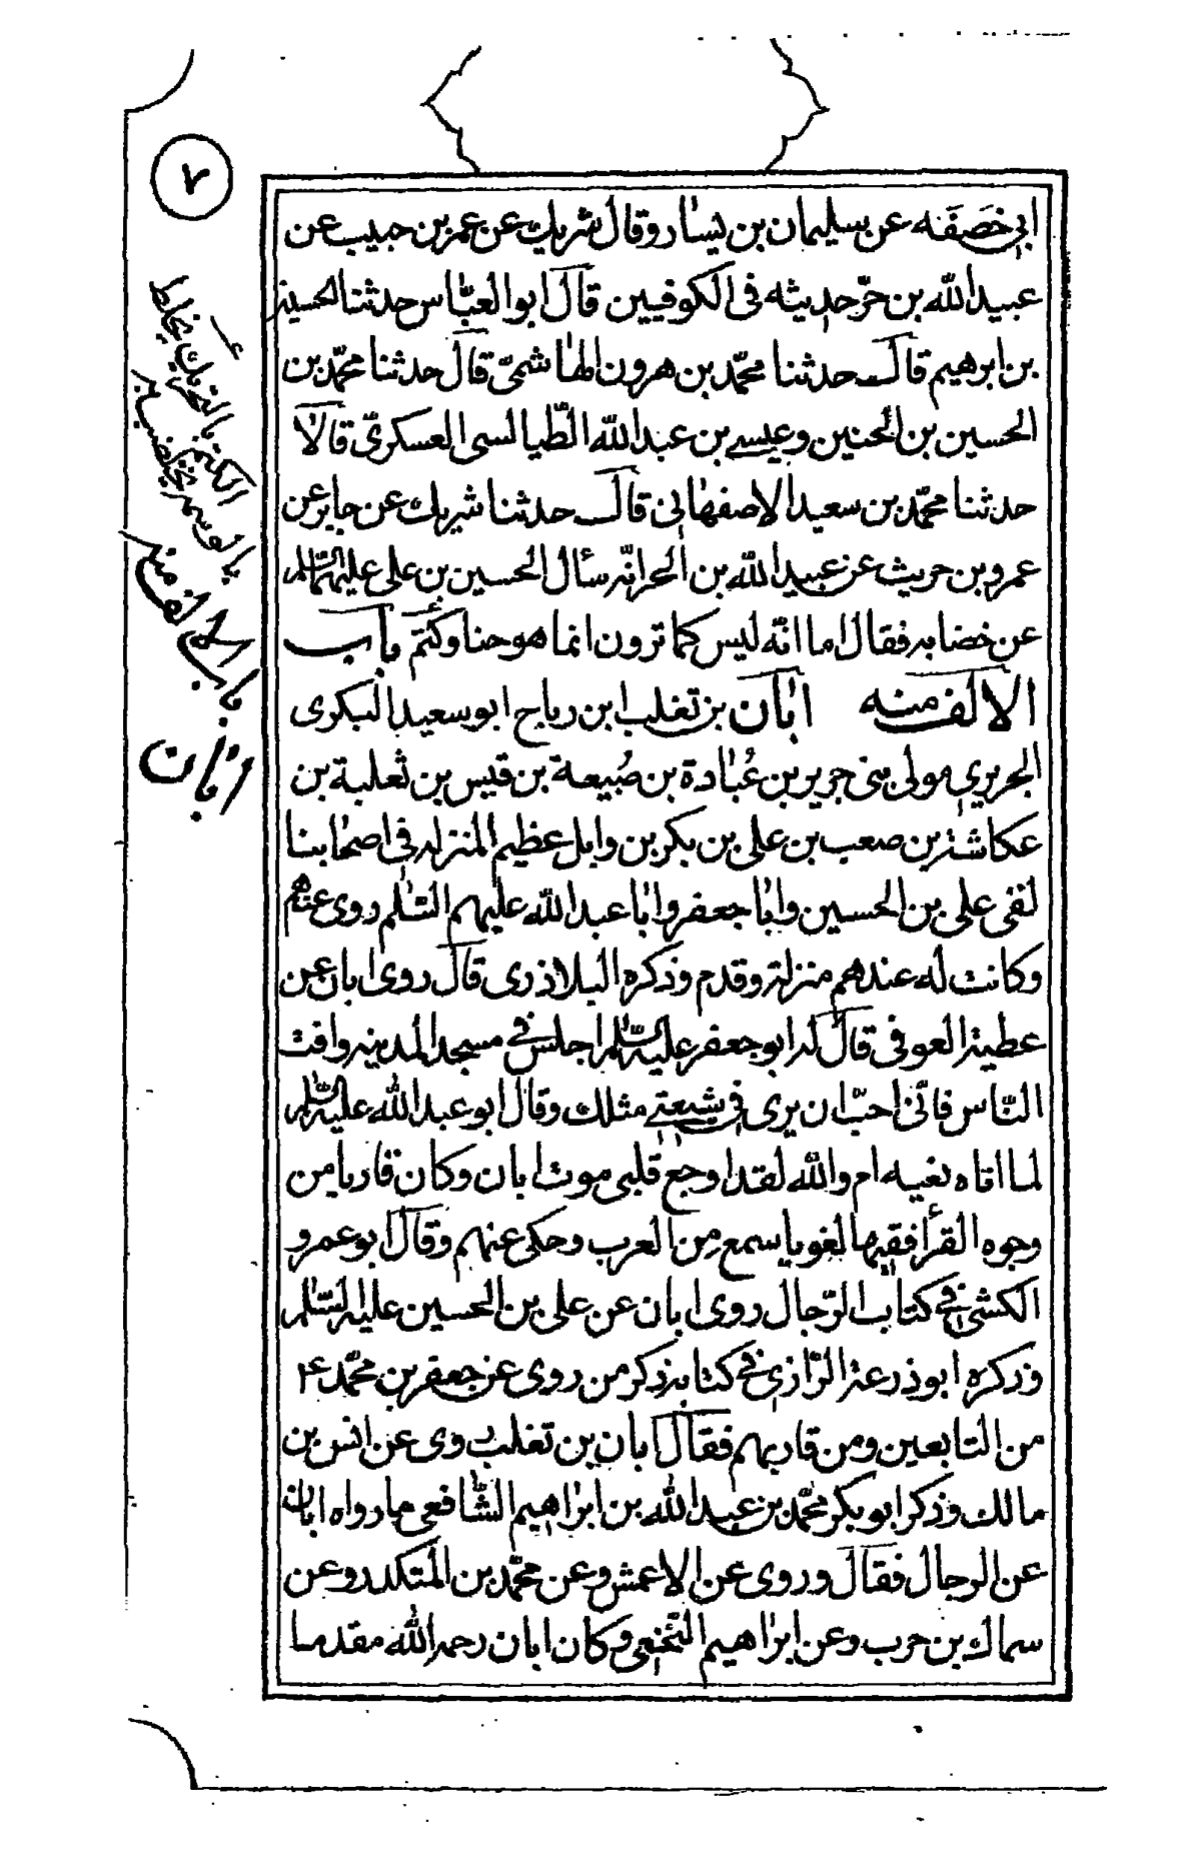 ٧
ابي خصَفَه عن سليمان بن يسار وقال شريك عن عمر بن حبيب عن
عبيد الله بن حرّ حديثه في الكوفيين قال ابو العبّاس حدثنا الحسين
بن ابرهيم قال حدثنا محمّد بن هرون الهاشمىّ قال حدثنا محمّد بن
الحسين بن الحنين وعيسى بن عبد الله الطّيالسى العسكرىّ قالا
حدثنا محمّد بن سعيد الاصفهانى قال حدثنا شريك عن جابر عن
عمرو بن حريث عن عبيد الله بن الحر انّه سأل الحسين بن على عليهما السّلم
عن خضابه فقال اما انّه ليس كما ترون انما هو حنا وكتم باب
الالف منه ابان بن تغلب ابن رباح ابو سعيد البكرى
الجريرى مولى بنى جرير بن عُبادة بن ضُبيعة بن قيس بن ثعلبة بن
عكاشة بن صعب بن على بن بكر بن وابل عظيم المنزله فى اصحابنا
لقى على بن الحسين وابا جعفر وابا عبد الله عليهم السّلم روى عنهم
وكانت له عندهم منزلة وقدم وذكره البلاذرى قال روى ابان عن
عطية العوفى قال له ابو جعفر عليه السّلم اجلس فى مسجد المدينه وافت
النّاس فانّى احبّ ان يرى فى شيعتى مثلك وقال ابو عبد الله عليه السّلم
لما اتاه نعيه ام والله لقد اوجع قلبى موت ابان وكان قاريا من
وجوه القرأ فقيها لغويا سمع من العرب وحكى عنهم وقال ابو عمرو
الكشى فى كتاب الرّجال روى ابان عن على بن الحسين عليه السّلم
وذكره ابو ذرعة الرّازى فى كتابه ذكر من روى عن جعفر بن محمّد ع
من التابعين ومن قاربهم فقال ابان بن تغلب روى عن انس بن
مالك وذكر ابو بكر محمّد بن عبد الله بن ابراهيم الشّافعى ما رواه ابان
عن الرجال فقال وروى عن الاعمش وعن محمّد بن المنكدر وعن
سماك بن حرب وعن ابراهيم النّخعى وكان ابان رحمه الله مقدما
الكتم بالتحريك يخلط
بالوسمه يختضب به
باب الالف منه
ابان